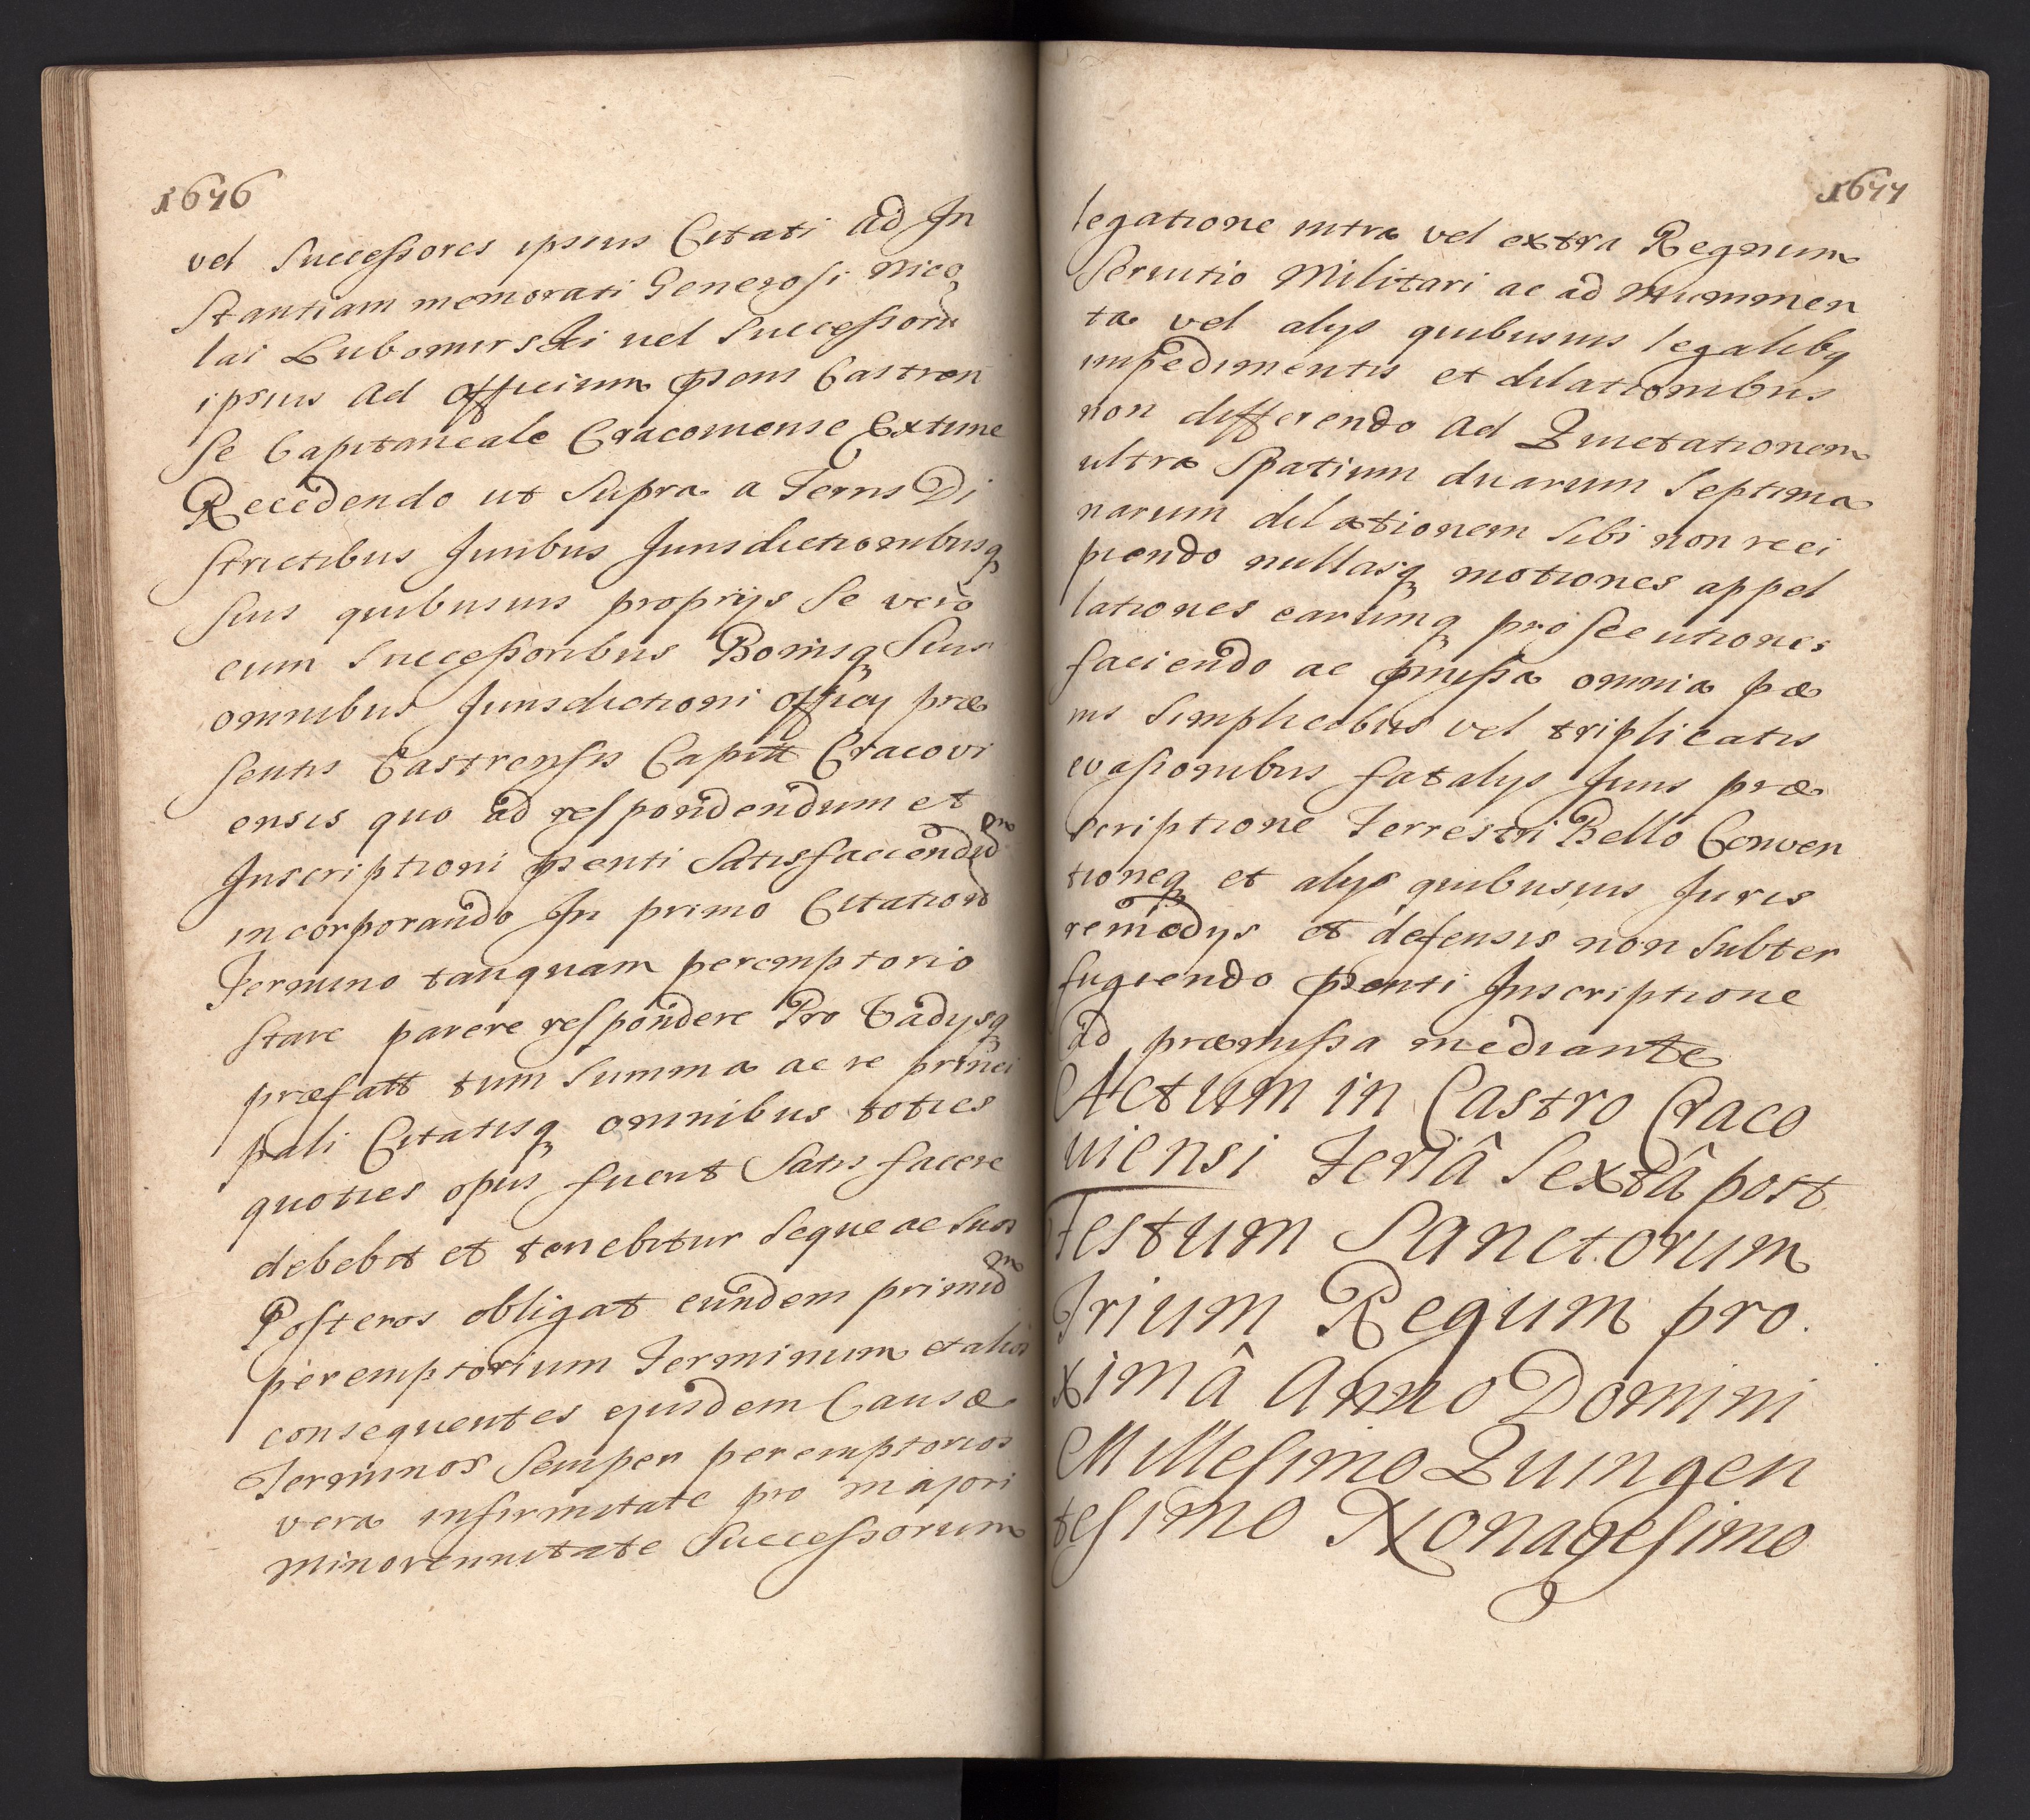 1646
vel Successores ipsius Citati ad In
Stantiam memorati Generosi Nico
lai Lubomirski vel Successorū
ipsius ad officium pñons Castren
se Capitaneale Cracoviense Extune
Recedendo ut Supra a Terris Di
strictibus Juribus Jurisdictionibusq
suis quibusuis proprijs se vero
cum Successoribus Bonisq suis
omnibus Jurisdictioni officij præ
sentis Castrensis Capitt Cracovi
ensis quo ad respondendum et
Inscriptioni pñenti Satisfaciendum
incorporando In primo Citationis
Termino tanquam peremptorio
stare parere respondere Pro Vadysq
præfatt tum Summa ac re princi
pali Citatisq omnibus toties
quoties opus fuerit Satis facere
debebit et tenebitur seque ac suos
Posteros obligat eundem primum
peremptorium Terminum et alios
consequentes ejusdem Causæ
Terminos Semper peremptorios
vera infirmitate pro majori
minorennitate Successorum
1647
legatione intra vel extra Regnum
Seruitio Militari ac ad munimen
ta vel alys quibusuis legalibq
impedimentis et dilationibus
non differendo ad Quietationem
ultra Spatium duarum Septima
narum dilationem sibi non reci
piendo nullasq motiones appel
lationes earumq prosecutiones
faciendo ac pmissa omnia pæ
nis Simplicibus vel triplicatis
evasionibus fatalys Juris præ
scriptione Terrestri Bello Conven
tioneq et alys quibusuis Juris
remedys et defensis non Subter
fugiendo pñenti Inscriptione
ad præmissa mediante
Actum in Castro Craco
uiensi Feriâ Sextâ post
Festum Sanctorum
Trium Regum pro.
ximâ Anno Domini
Millesimo Quingen
tesimo Nonagesimo